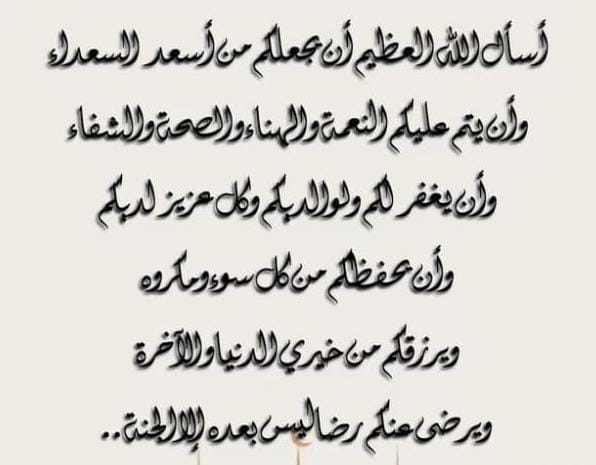 أسأل الله العظيم أن يجعلكم من أسعد السعداء
وأن يتم عليكم النعمة والهناء والصحة والشفاء
وأن يغفر لكم ولوالديكم وكل عزيز لديكم
وأن يحفظكم من كل سوء ومكروه
ويرزقكم من خيري الدنيا والآخرة
ويرضى عنكم رضا ليس بعده إلا الجنة..